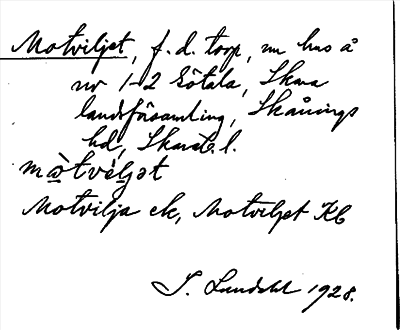 Motviljet, f. d. torp, nu hus å
nr 1-2 Götala, Skara
landsförsamling, Skånings
hd, Skarab. l.
mòtvéljət
Motvilja ek, Motviljet Kb
S. Landahl 1928.